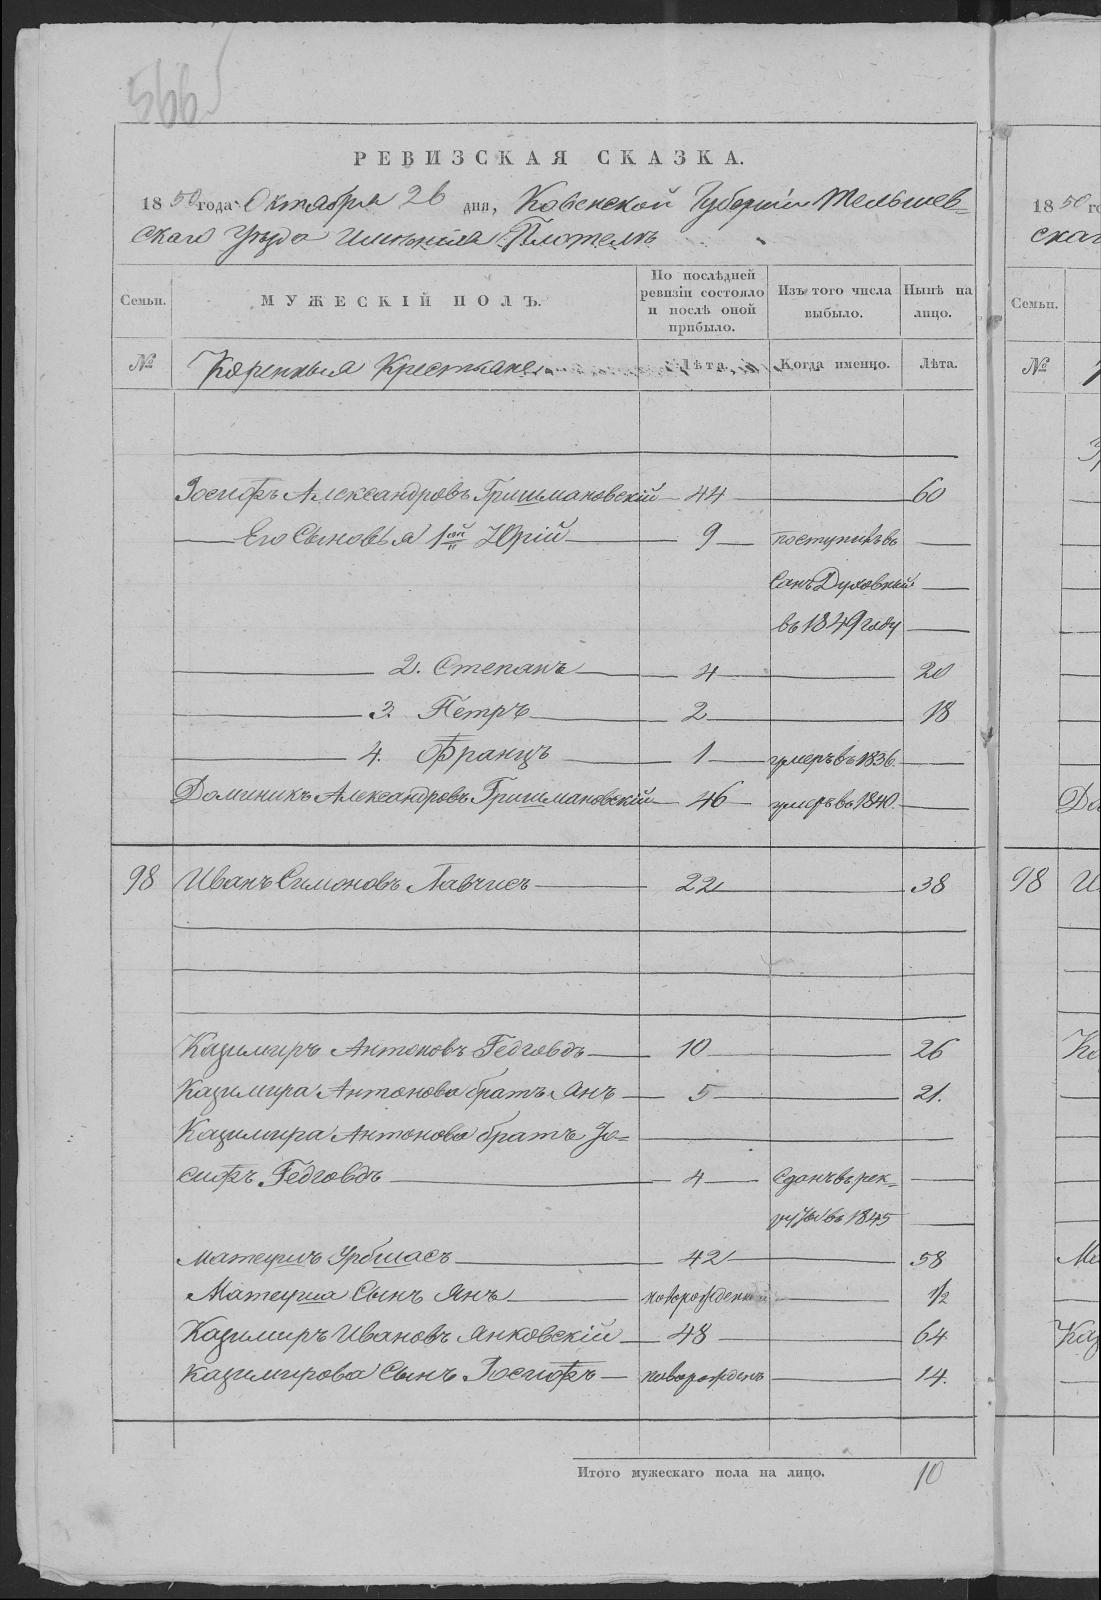 566
РЕВИЗСКАЯ СКАЗКА.
1850 года Октября 26 дня, Ковенской Губерніи Тельшев=
скаго Уѣзда Имѣнія Плотель
Семьи. МУЖЕСКІЙ ПОЛЪ. По послѣдней ревизіи состояло и послѣ оной прибыло. Изъ того числа выбыло. Нынѣ на лицо.
№ Коренныя Крестьяне Лѣта. Когда именно. Лѣта.
Іосифъ Александровъ Гришмановскій 44 60
Его Сыновья 1ой Юрій 9 поступилъ въ
Санъ Духовный
въ 1849 году
2. Степанъ 4 20
3. Петръ 2 18
4. Францъ 1 умеръ въ 1836.
Доминикъ Александровъ Гришмановскій 46 умеръ въ 1840.
98 Иванъ Симоновъ Павчисъ 22 38
Казимиръ Антоновъ Гедговдъ 10 26
Казимира Антонова братъ Янъ 5 21.
Казимира Антонова братъ Іо=
сифъ Гедговдъ 4 Сданъ въ рек=
руты въ 1845
Матеушъ Урбшасъ 42 58
Матеуша Сынъ Янъ новорожденный 1/2
Казимиръ Ивановъ Янковскій 48 64
Казимирова Сынъ Іосифъ новорожденъ 14.
Итого мужескаго пола на лицо. 10
1850 го
скаг
Семьи.
№
98 И
До
Ка
Ма
Каз